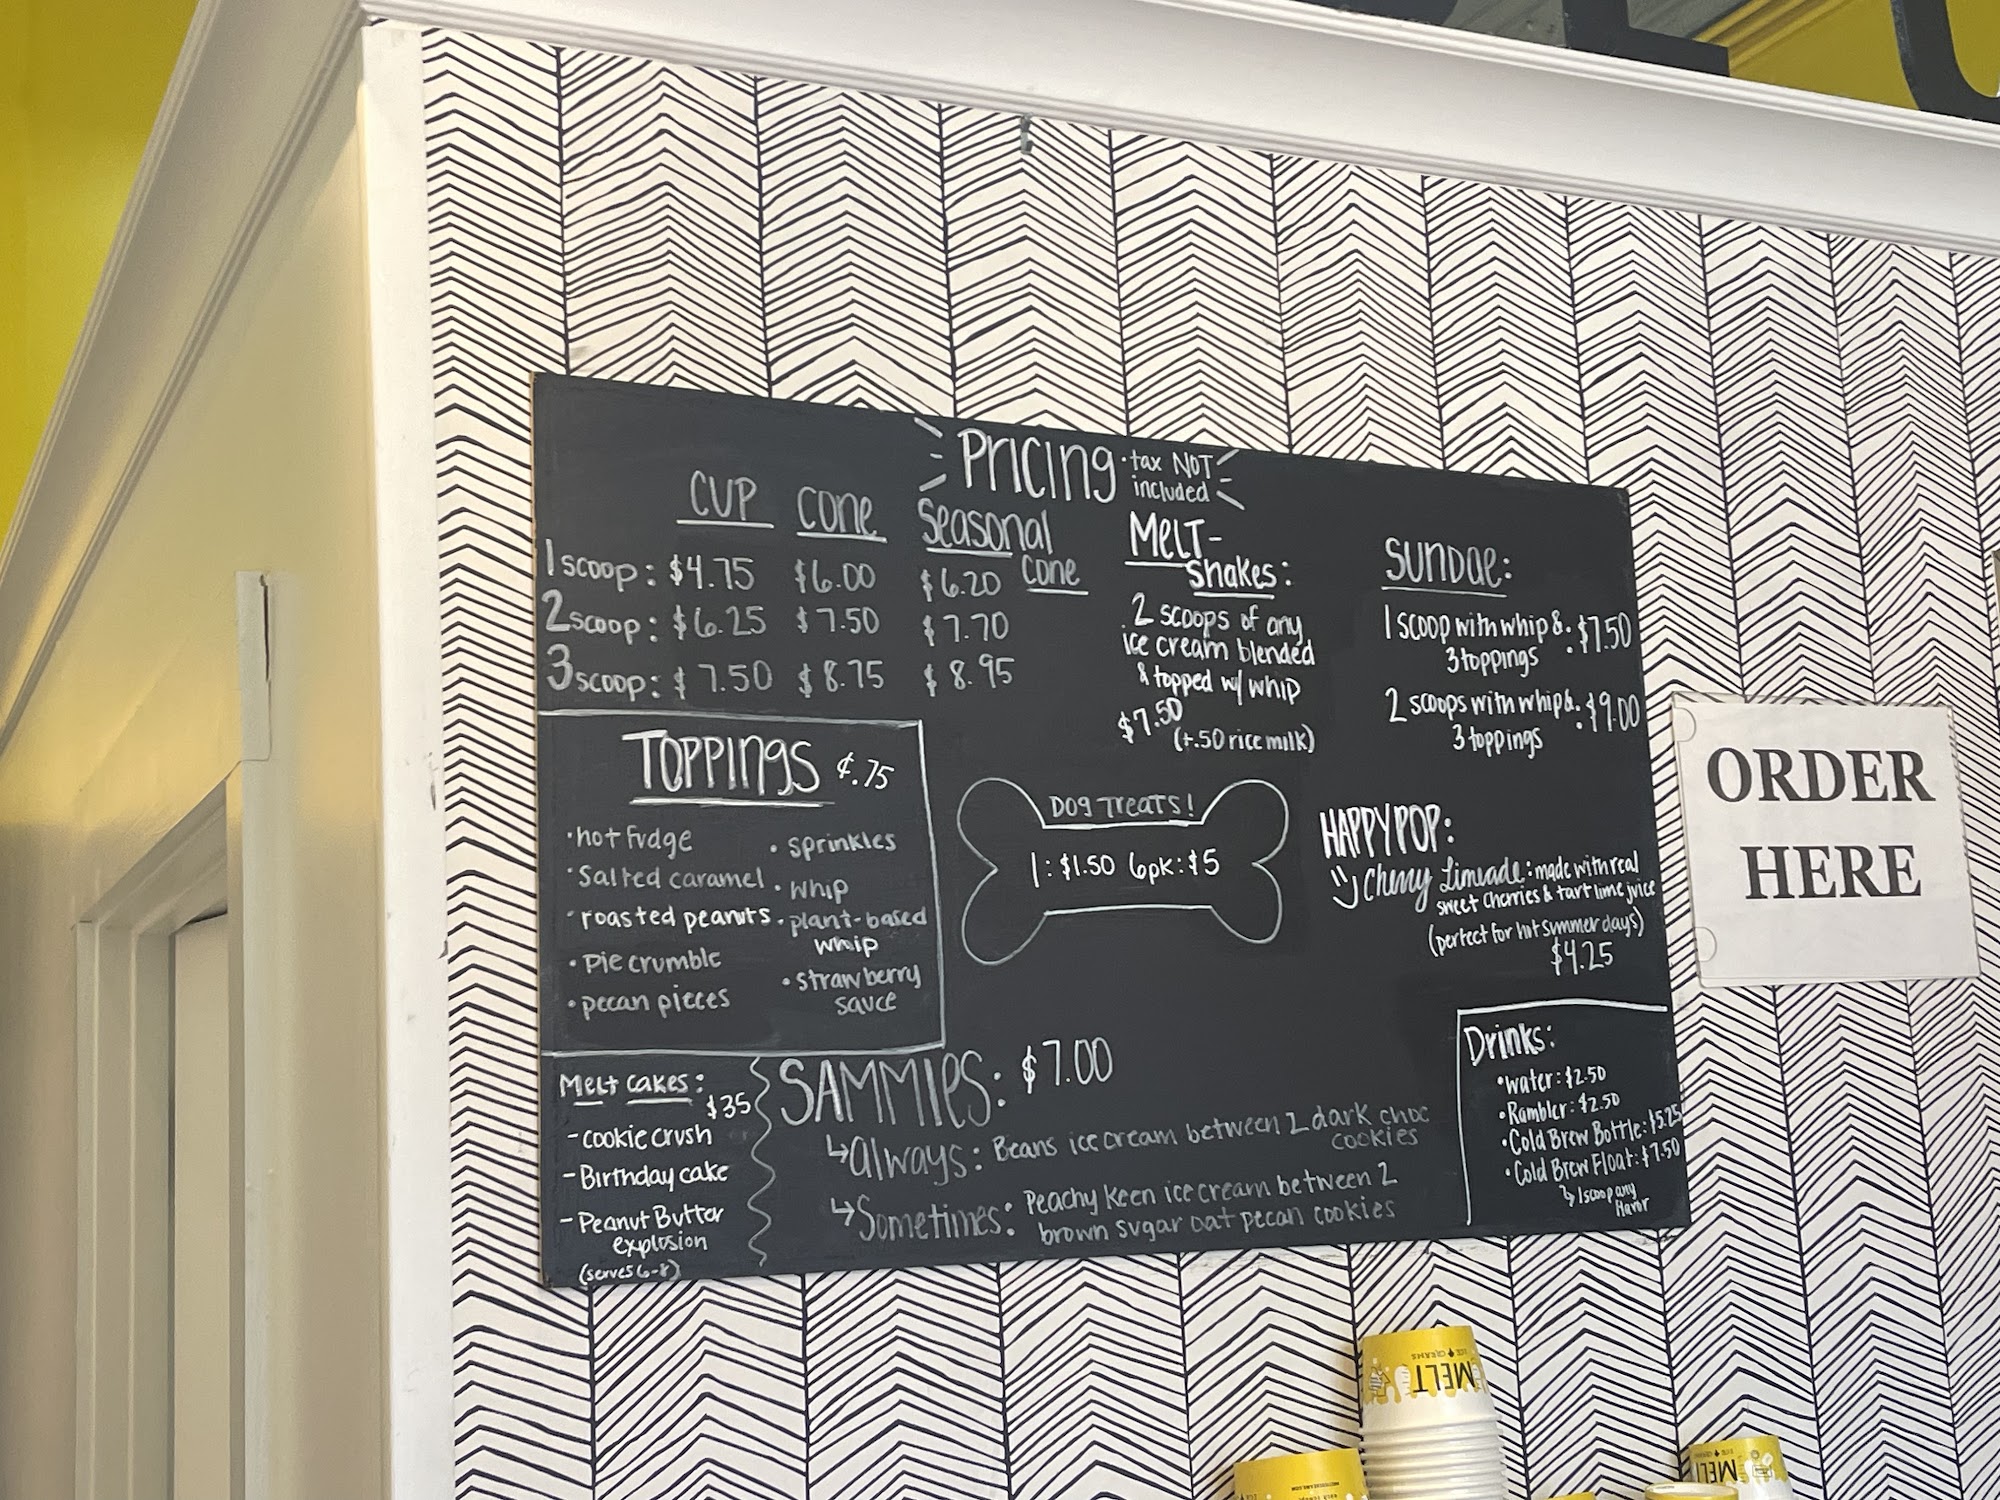 Pricing · tax NOT
included
CUP cone Seasonal
cone
1 scoop: $4.75 $6.00 $6.20
2 scoop: $6.25 $7.50 $7.70
3 scoop: $7.50 $8.75 $8.95
TOPPINGS ¢.75
• hot fudge
• salted caramel
• roasted peanuts
• pie crumble
• pecan pieces
• sprinkles
• whip
• plant-based
whip
• strawberry
sauce
MELT cakes:
$35
- cookie crush
- Birthday cake
- Peanut Butter
explosion
(serves 6-8)
MELT-
shakes:
2 scoops of any
ice cream blended
& topped w/ whip
$7.50
(+.50 rice milk)
SUNDAE:
1 scoop with whip & : $7.50
3 toppings
2 scoops with whip & : $9.00
3 toppings
DOG TREATS!
1: $1.50 6pk: $5
HAPPY POP:
Cherry Limeade: made with real
sweet cherries & tart lime juice
(perfect for hot summer days)
$4.25
SAMMIES: $7.00
↳ always: Beans ice cream between 2 dark choc
cookies
↳ Sometimes: Peachy Keen ice cream between 2
brown sugar oat pecan cookies
Drinks:
• water: $2.50
• Rambler: $2.50
• Cold Brew Bottle: $5.25
• Cold Brew Float: $7.50
↳ 1 scoop any
flavor
ORDER
HERE
MELT
ICE CREAMS
MELT